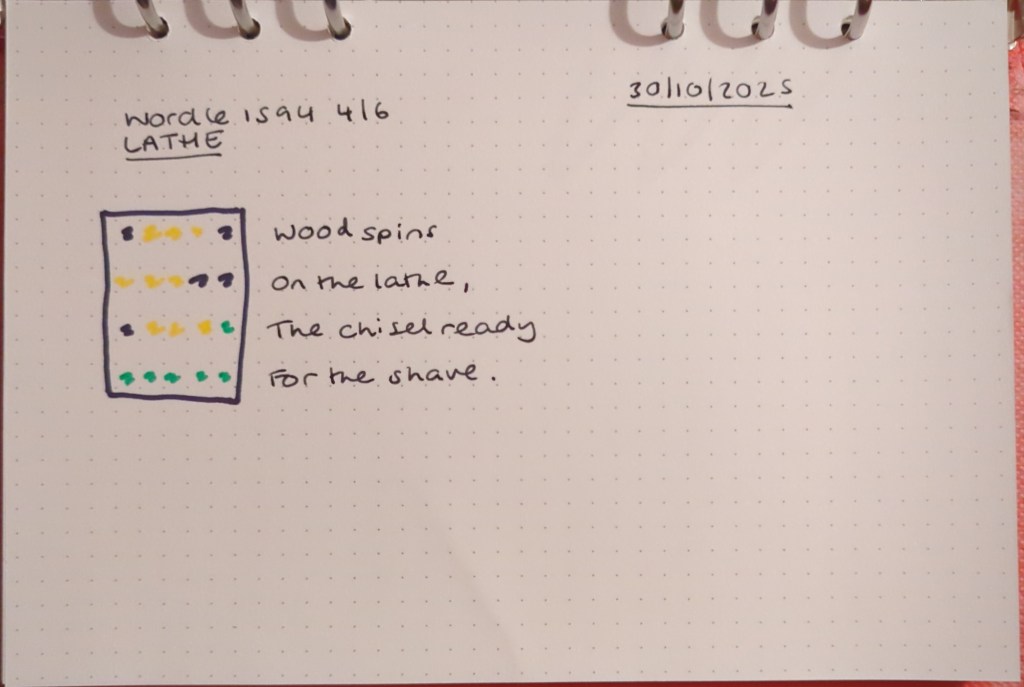 30/10/2025
Wordle 1594 4/6
LATHE
Wood spins
On the lathe,
The chisel ready
For the shave.